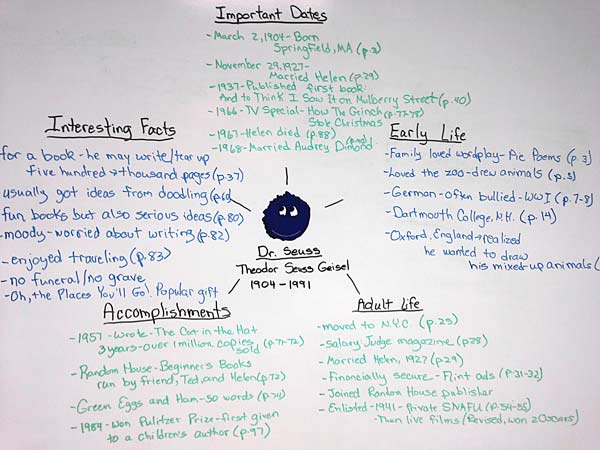 Important Dates
-March 2, 1904-Born
Springfield, MA (p.3)
-November 29, 1927-
Married Helen (p.29)
-1937-Published first book:
And to Think I Saw It on Mulberry Street (p.40)
-1966-TV Special-How The Grinch (p.77-78)
Stole Christmas
-1967-Helen died (p.88)
-1968-Married Audrey Dimond
Interesting Facts
for a book-he may write/tear up
five hundred→thousand pages (p.37)
usually got ideas from doodling
fun books but also serious ideas (p.80)
-moody-worried about writing (p.82)
-enjoyed traveling (p.83)
-no funeral/no grave
-Oh, the Places You'll Go! Popular gift
Early Life
-Family loved wordplay-Pie Poems (p.3)
-Loved the zoo-drew animals (p.5)
-German-often bullied-WWI (p.7-8)
-Dartmouth College, N.H. (p.14)
-Oxford, England→realized
he wanted to draw
his mixed-up animals (
Dr. Seuss
Theodor Seuss Geisel
1904-1991
Accomplishments
-1957-Wrote-The Cat in the Hat
3 years-over 1 million copies sold (p.71-72)
-Random House-Beginner's Books
run by friend, Ted, and Helen (p.72)
-Green Eggs and Ham-50 words (p.74)
-1984-Won Pulitzer Prize-first given
to a children's author (p.97)
Adult Life
-moved to N.Y.C. (p.25)
-salary: Judge magazine (p.28)
-Married Helen, 1927 (p.29)
-Financially secure-Flint ads (p.31-32)
-Joined Random House publisher
-Enlisted-1941-Private SNAFU (p.54-55)
-Then live films (Revised, won 2 Oscars)